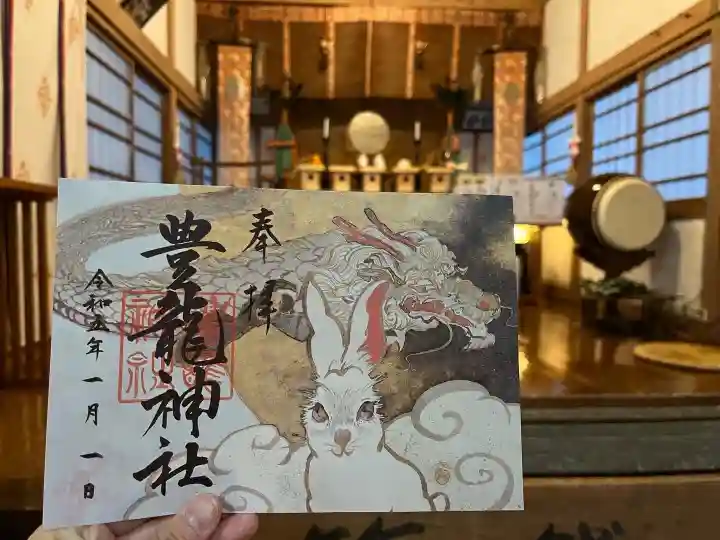 奉拝
豊龍神社
令和五年一月一日